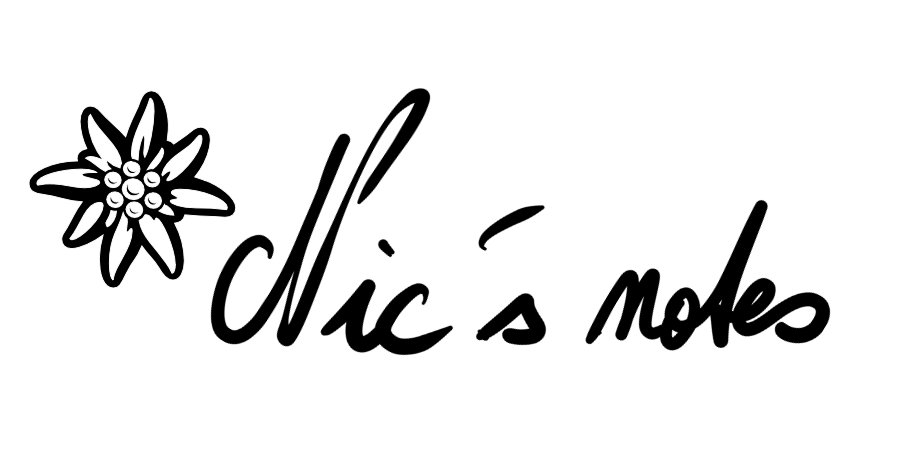 Nic´s notes